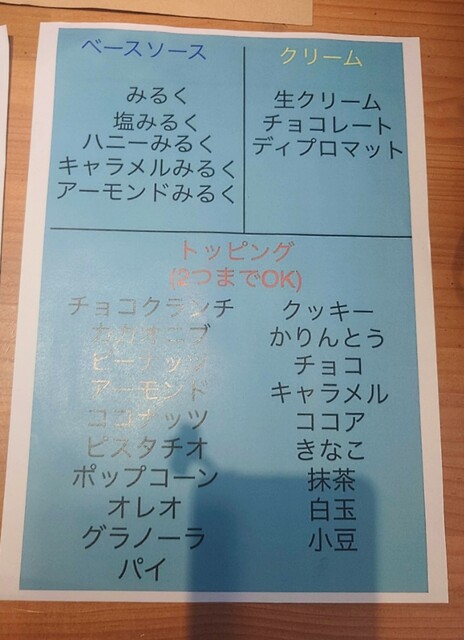 ベースソース
みるく
塩みるく
ハニーみるく
キャラメルみるく
アーモンドみるく
クリーム
生クリーム
チョコレート
ディプロマット
トッピング
(2つまでOK)
チョコクランチ
カカオニブ
ピーナッツ
アーモンド
ココナッツ
ピスタチオ
ポップコーン
オレオ
グラノーラ
パイ
クッキー
かりんとう
チョコ
キャラメル
ココア
きなこ
抹茶
白玉
小豆